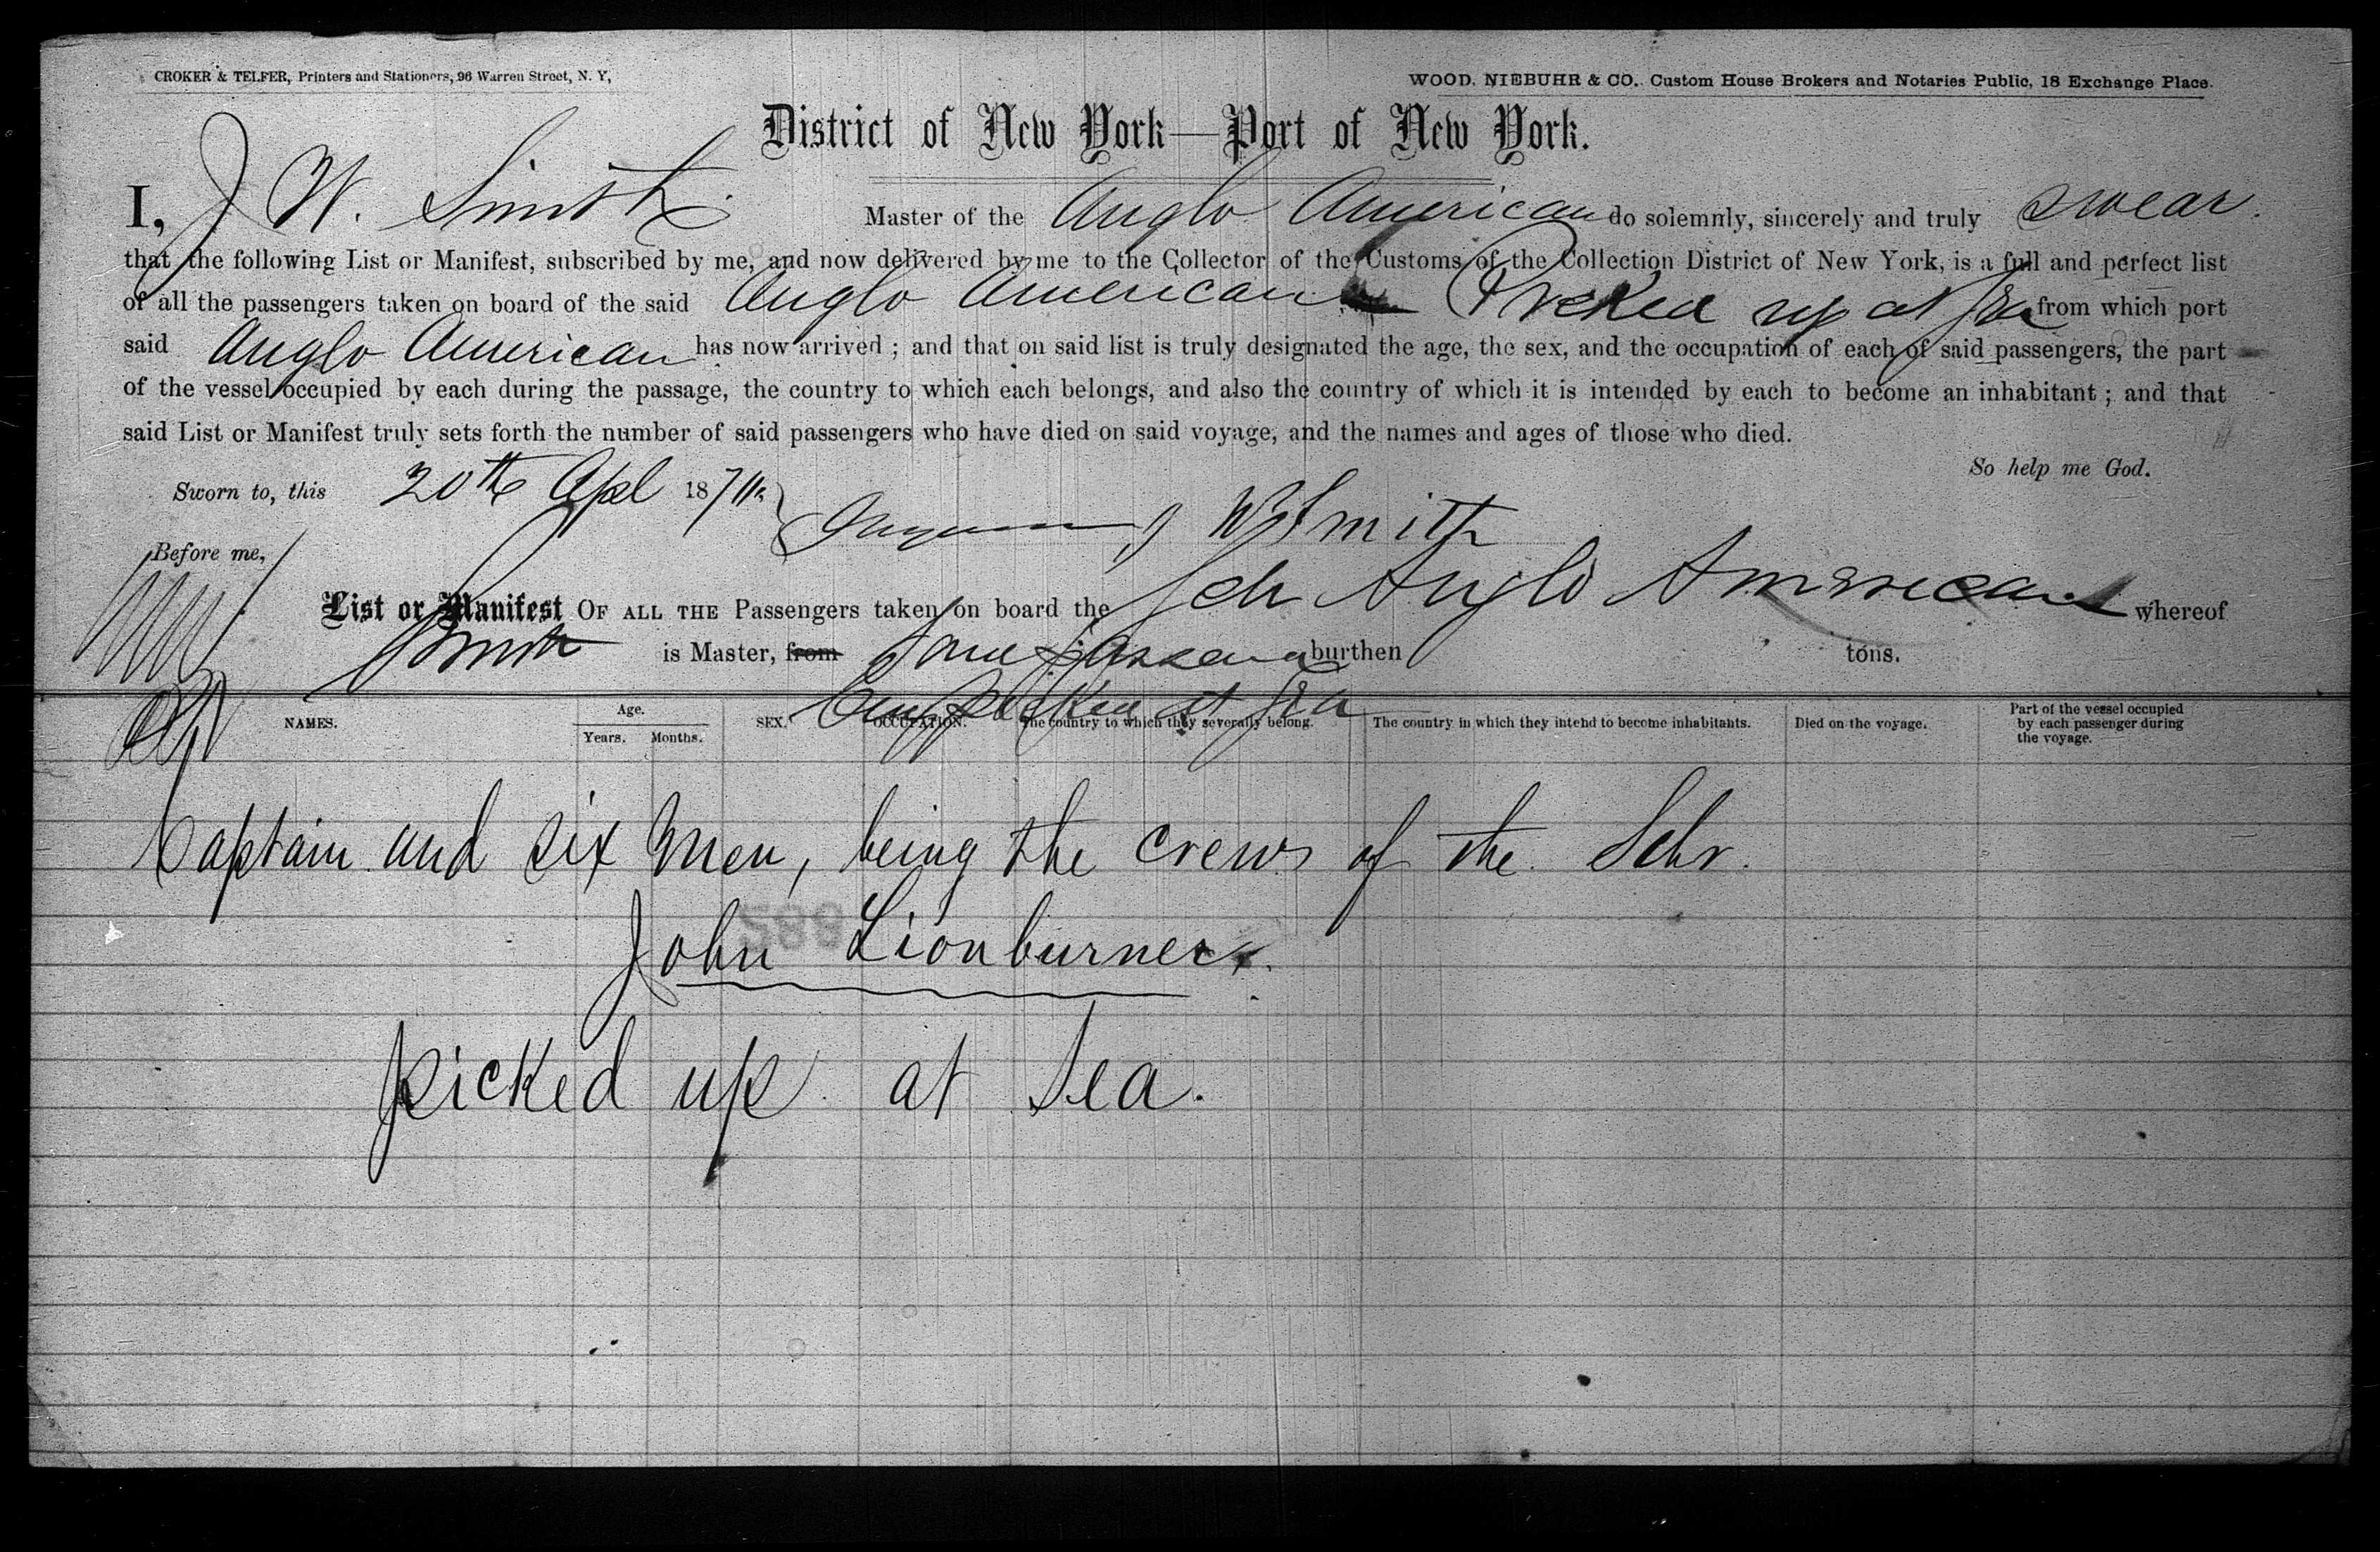 CROKER & TELFER, Printers and Stationers, 96 Warren Street, N. Y,
WOOD. NIEBUHR & CO. Custom House Brokers and Notaries Public, 18 Exchange Place.
District of New York—Port of New York.
I, J W. Smith Master of the Anglo American do solemnly, sincerely and truly swear.
that the following List or Manifest, subscribed by me, and now delivered by me to the Collector of the Customs of the Collection District of New York, is a full and perfect list
of all the passengers taken on board of the said Anglo American Picked up at Sea from which port
said Anglo American has now arrived ; and that on said list is truly designated the age, the sex, and the occupation of each of said passengers, the part
of the vessel occupied by each during the passage, the country to which each belongs, and also the country of which it is intended by each to become an inhabitant ; and that
said List or Manifest truly sets forth the number of said passengers who have died on said voyage, and the names and ages of those who died.
So help me God.
Sworn to, this 20th Apl 187
J W Smith
Before me,
List or Manifest OF ALL THE Passengers taken on board the Sch Anglo American whereof
Smith is Master, from burthen tons.
at Sea
NAMES. Age. Years. Months. SEX. OCCUPATION. The country to which they severally belong. The country in which they intend to become inhabitants. Died on the voyage. Part of the vessel occupied by each passenger during the voyage.
Captain and six Men, being the crew of the Schr.
588
John Lionburner.
picked up at Sea.